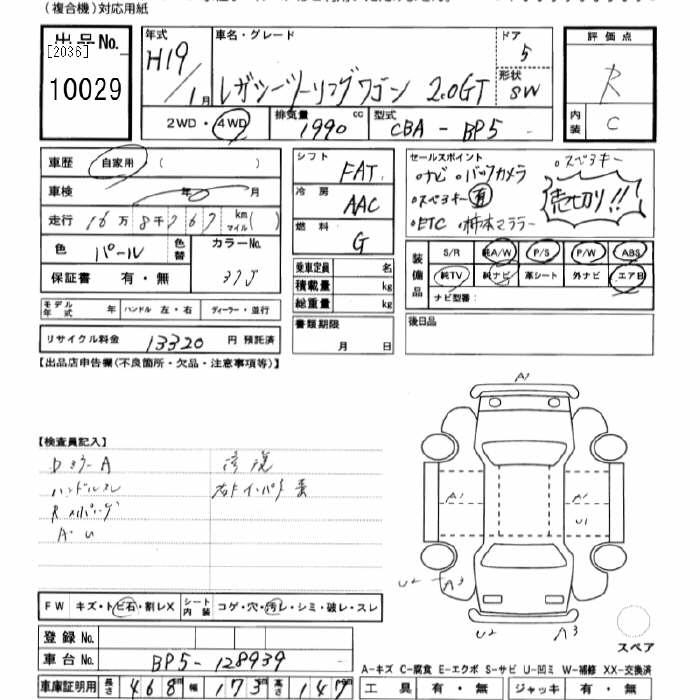 (複合機)対応用紙
出品No.
[2036]
10029
年式
H19/1月
車名・グレード
レガシーツーリングワゴン 2.0GT
ドア
5
形状
SW
評価点
R
内装
C
2WD・4WD
排気量
1990 cc
型式
CBA - BP5 -
車歴
自家用
(
)
車検
年
月
走行
16万8千767
km
マイル
( )
色
パール
色替
カラーNo.
37J
保証書 有・無
シフト
FAT
冷房
AAC
燃料
G
乗車定員 名
積載量 kg
総重量 kg
書類期限
月 日
セールスポイント
・ナビ ・バックカメラ
・スペアキー 有
・ETC ・柿本マフラー
・スペアキー
売切り!!
装備品
S/R
純A/W
P/S
P/W
ABS
純TV
純ナビ
革シート
外ナビ
エアB
ナビ型番:
後日品
モデル年式 年
ハンドル 左・右
ディーラー・並行
リサイクル料金 13320 円 預託済
【出品店申告欄(不良箇所・欠品・注意事項等)】
【検査員記入】
ハンドルスレ
A・U
修復
A1
A1
A1
U1
U2
A3
U2
A3
スペア
FW
キズ・トビ石・割レX
シート内装
コゲ・穴・汚レ・シミ・破レ・スレ
登録No.
車台No.
BP5-128939
車庫証明用
長さ
468
幅
173
高さ
147
A-キズ C-腐食 E-エクボ S-サビ U-凹ミ W-補修 XX-交換済
工具 有・無
ジャッキ 有・無